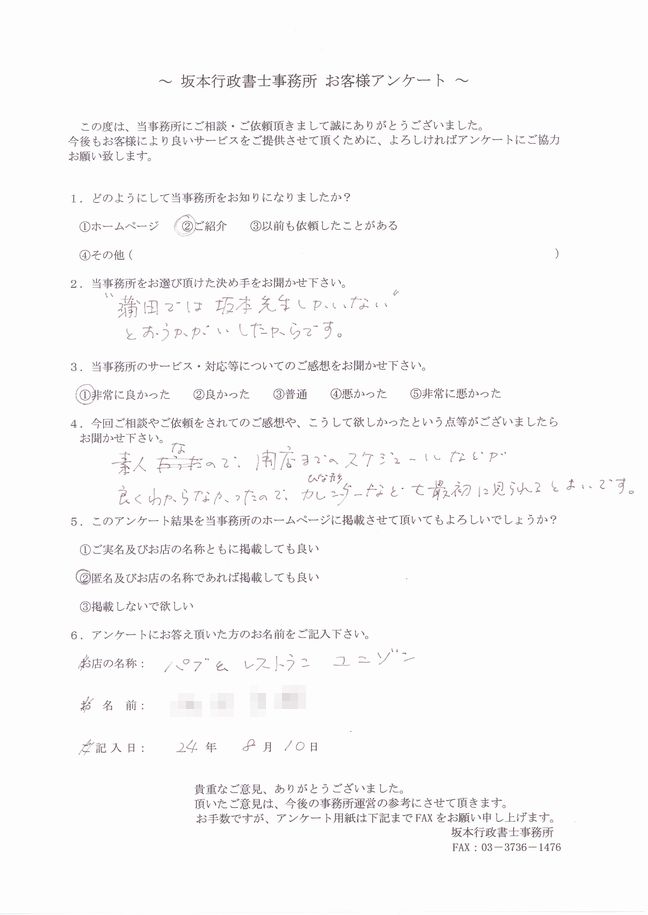 ～ 坂本行政書士事務所 お客様アンケート ～
この度は、当事務所にご相談・ご依頼頂きまして誠にありがとうございました。
今後もお客様により良いサービスをご提供させて頂くために、よろしければアンケートにご協力
お願い致します。
1．どのようにして当事務所をお知りになりましたか？
①ホームページ ②ご紹介 ③以前も依頼したことがある
④その他 ( )
2．当事務所をお選び頂けた決め手をお聞かせ下さい。
"蒲田では 坂本先生しかいない"
とおうかがいしたからです。
3．当事務所のサービス・対応等についてのご感想をお聞かせ下さい。
①非常に良かった ②良かった ③普通 ④悪かった ⑤非常に悪かった
4．今回ご相談やご依頼をされてのご感想や、こうして欲しかったという点等がございましたら
お聞かせ下さい。
素人なので、開店までのスケジュールなどが
良くわからなかったので、ひな形カレンダーなど最初に見られるとよいです。
5．このアンケート結果を当事務所のホームページに掲載させて頂いてもよろしいでしょうか？
①ご実名及びお店の名称ともに掲載しても良い
②匿名及びお店の名称であれば掲載しても良い
③掲載しないで欲しい
6．アンケートにお答え頂いた方のお名前をご記入下さい。
お店の名称： パブ& レストラン ユニゾン
お 名 前：
ご記入日： 24 年 8 月 10 日
貴重なご意見、ありがとうございました。
頂いたご意見は、今後の事務所運営の参考にさせて頂きます。
お手数ですが、アンケート用紙は下記まで FAX をお願い申し上げます。
坂本行政書士事務所
FAX：03－3736－1476